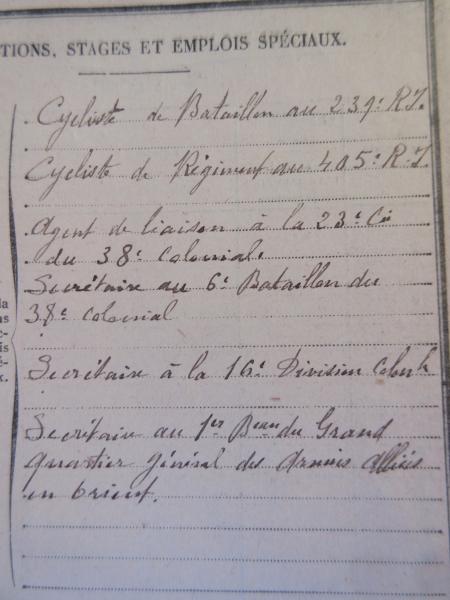 TIONS, STAGES ET EMPLOIS SPÉCIAUX.
Cycliste de Bataillon au 239e R.I.
Cycliste de Régiment au 405e R.I.
Agent de liaison à la 23e Cie
du 38e Colonial.
Secrétaire au 6e Bataillon du
38e colonial
Secrétaire à la 16e Division Colonle
Secrétaire au 1er Beau du Grand
quartier général des armées alliées
en Orient.
la
ns
c-
is
é-
x.